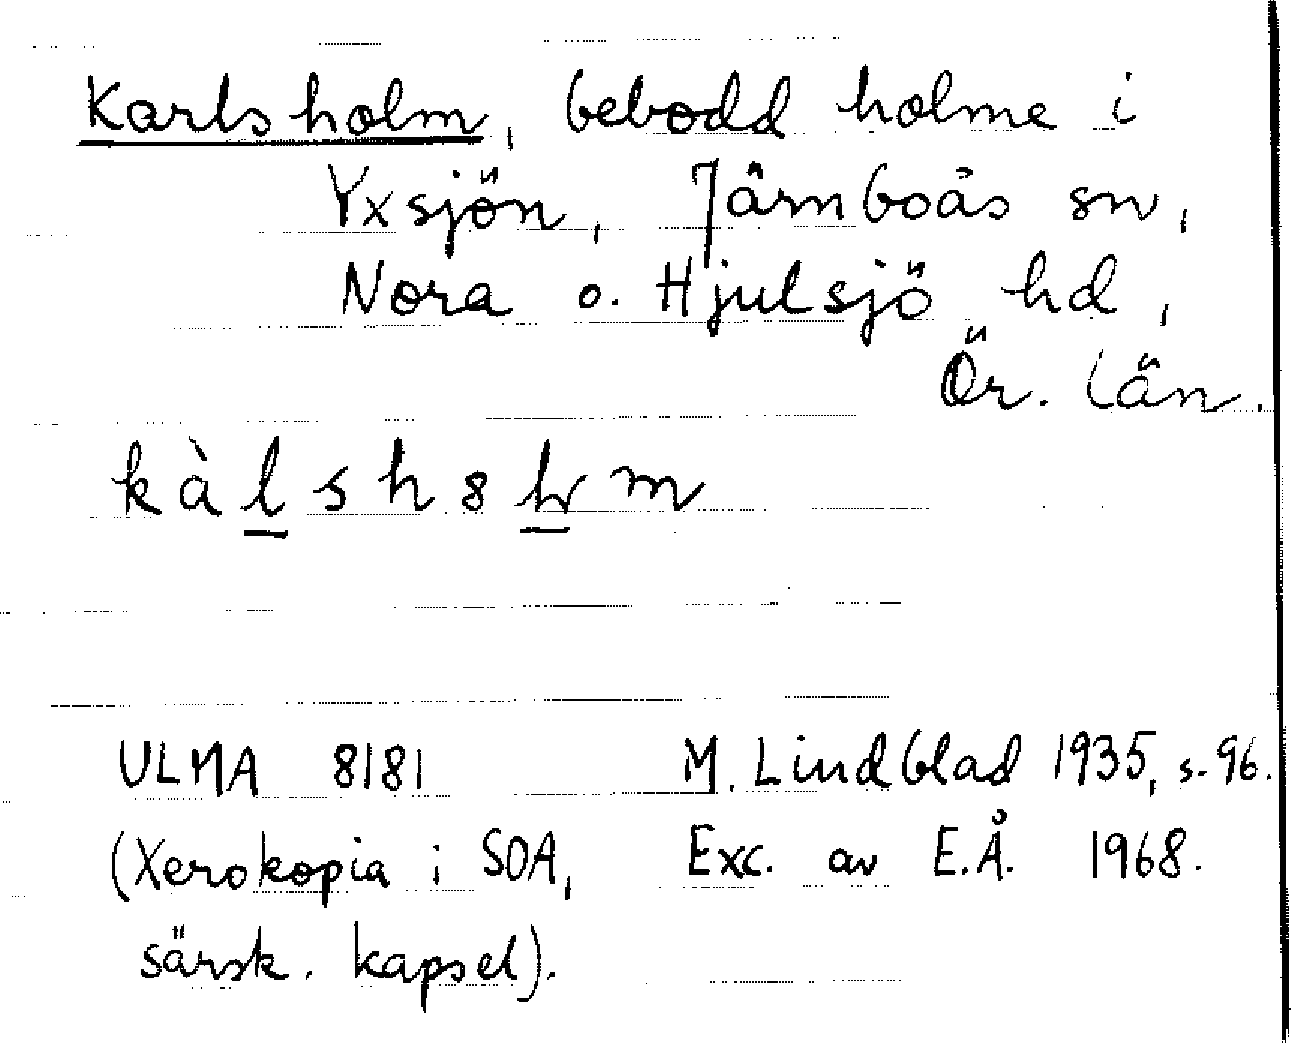 Karlsholm, bebodd holme i
Yxsjön, Järnboås sn,
Nora o. Hjulsjö hd,
Ör. län.
ULMA 8181 M. Lindblad 1935, s. 96.
(Xerokopia i SOA, Exc. av E.Å. 1968.
särsk. kapsel).